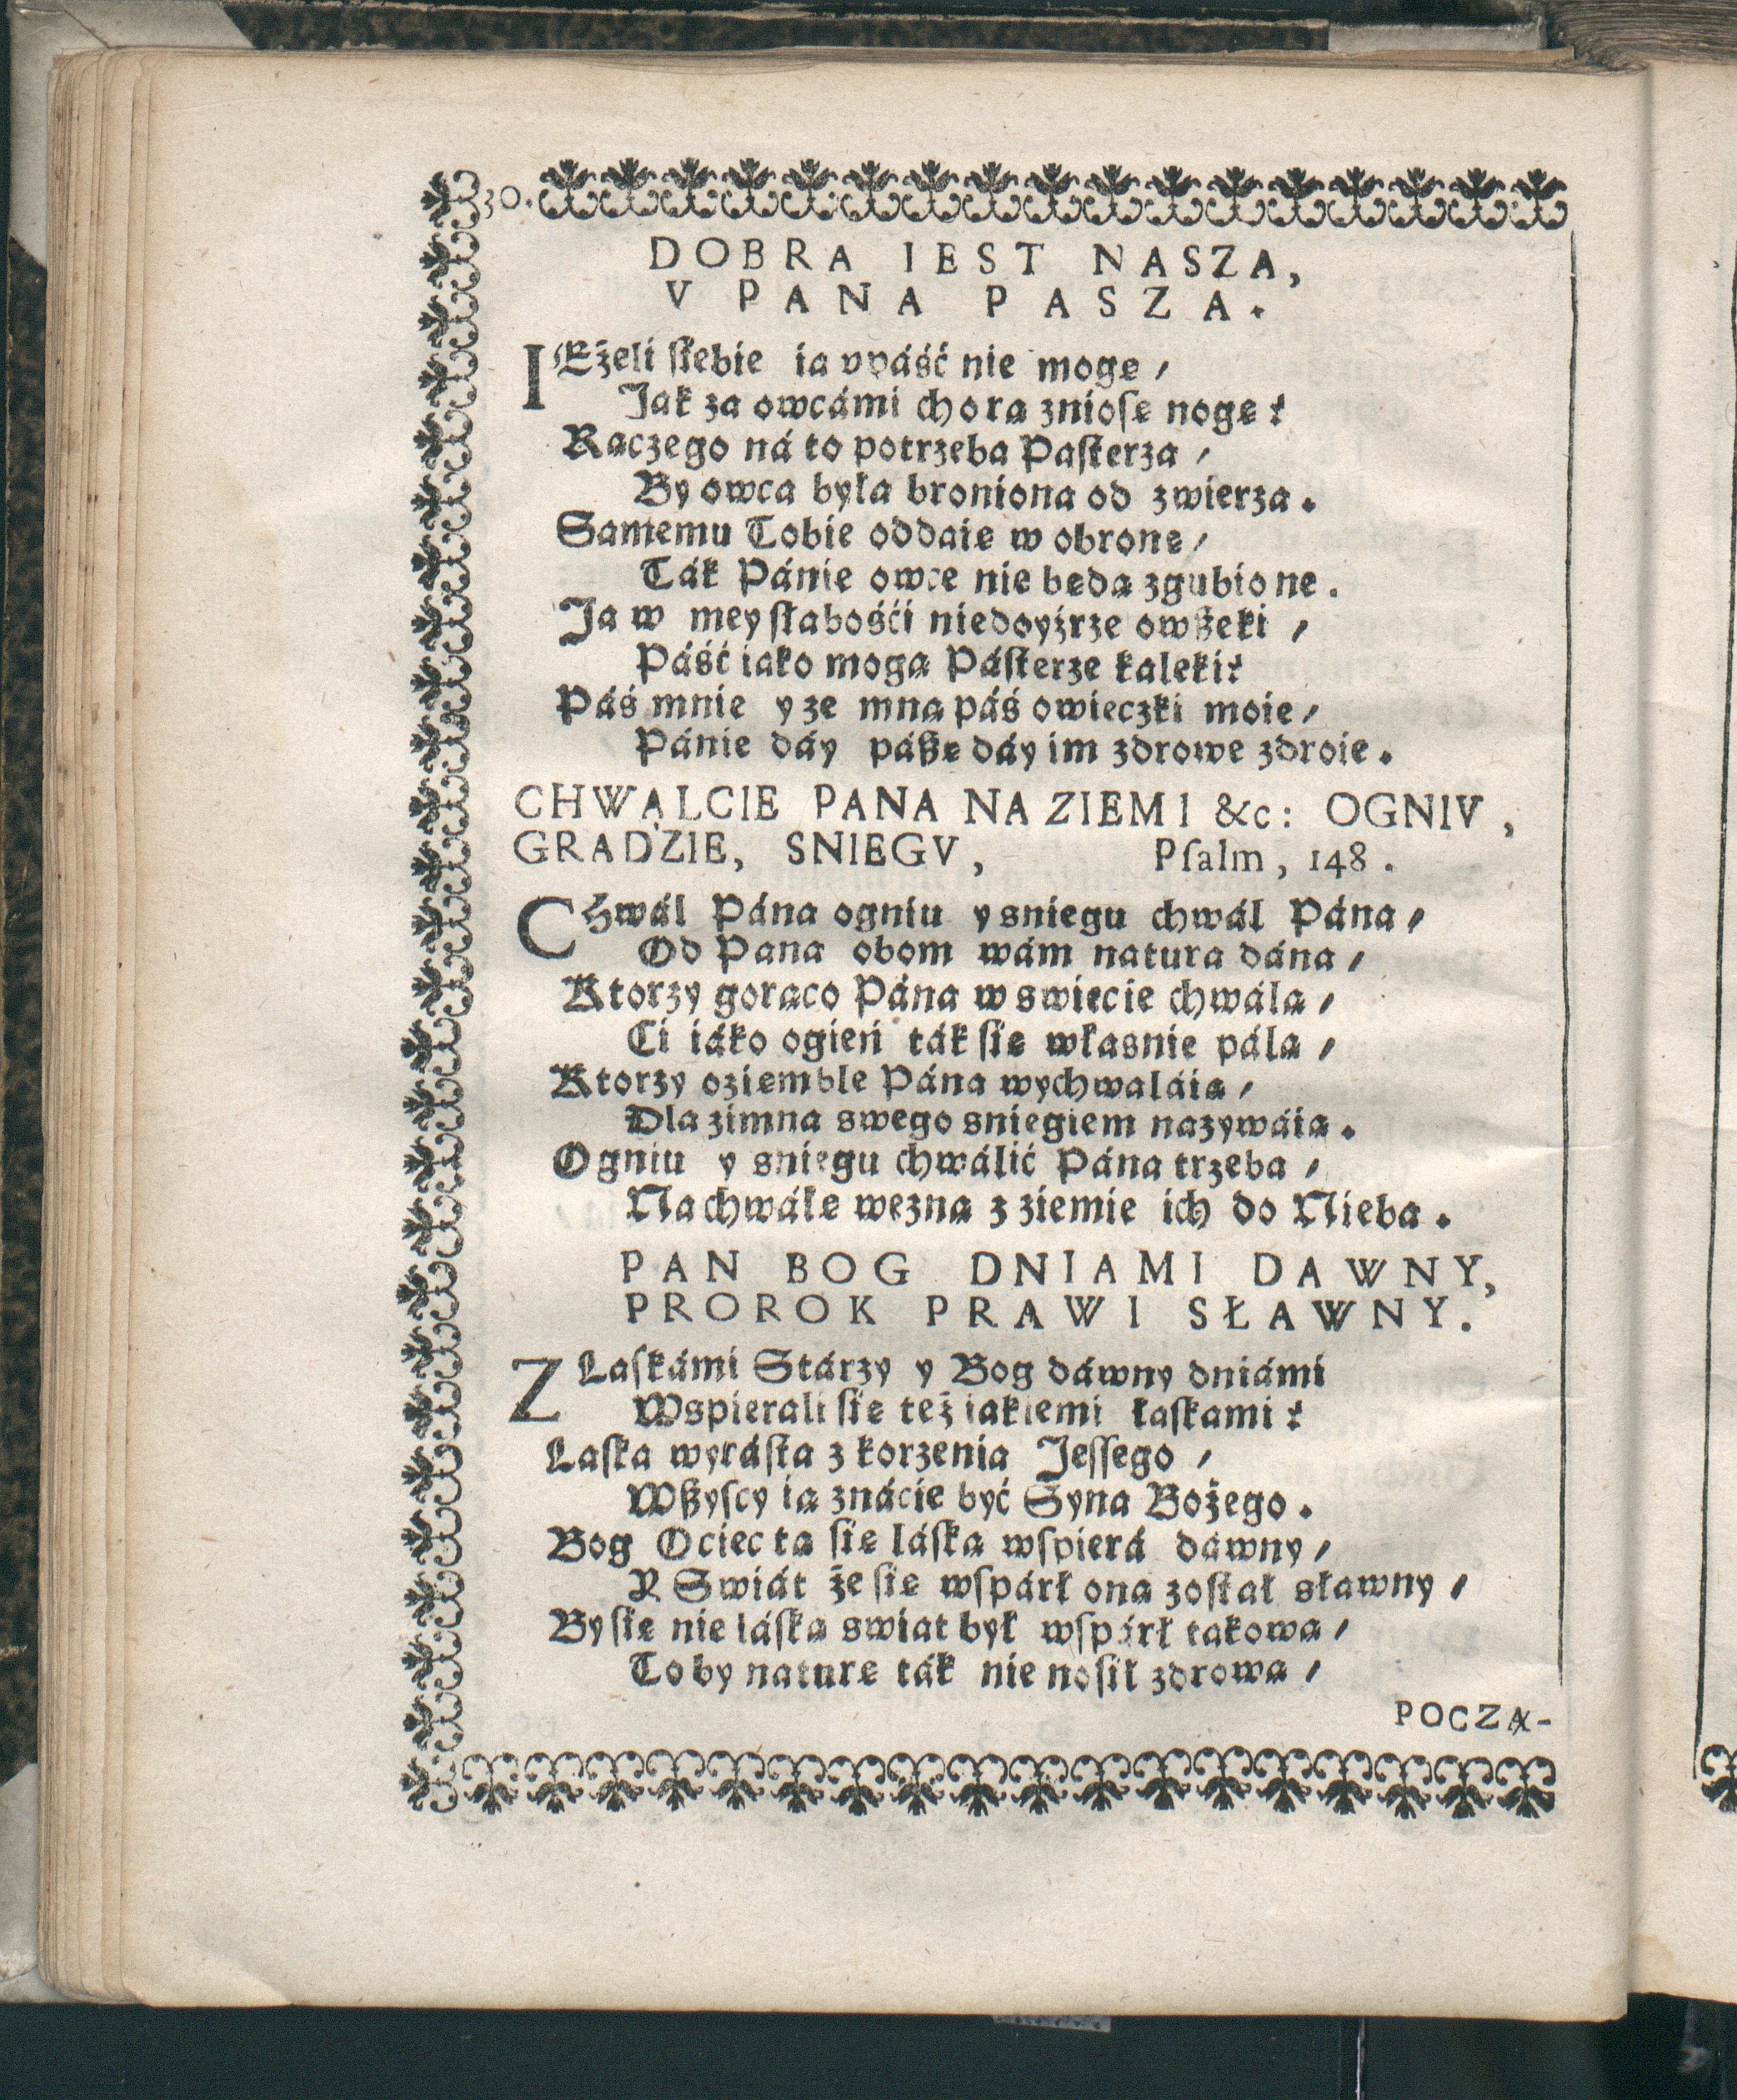 30.
DOBRA IEST NASZA,
V PANA PASZA.
IEżeli siebie ia vpáść nie mogę /
Jak za owcámi chorą zniosę nogę?
Raczego ná to potrzeba Pasterza /
By owcá była broniona od zwierza.
Samemu Tobie oddaię w obronę /
Ták Pánie owce nie będą zgubione.
Ja w mey słabośći niedoyźrzę owßeki /
Páść iako mogą Pásterze kaleki?
Páś mnie y ze mną páś owieczki moie /
Pánie dáy páßę dáy im zdrowe zdroie.
CHWALCIE PANA NA ZIEMI &c: OGNIV,
GRADZIE, SNIEGV, Psalm, 148.
Chwál Pána ogniu y sniegu chwál Pána /
Od Pana obom wám natura dána /
Ktorzy gorąco Pána w swiecie chwálą /
Ci iáko ogień ták się własnie pálą /
Ktorzy oziemble Pána wychwaláią /
Dla zimna swego sniegiem nazywáią.
Ogniu y sniegu chwálić Pána trzeba /
Na chwáłę wezną z ziemie ich do Nieba.
PAN BOG DNIAMI DAWNY,
PROROK PRAWI SŁAWNY.
Z Laskámi Stárzy y Bog dáwny dniámi
Wspierali się też iakiemi łaskami?
Laska wyrásta z korzenia Jessego /
Wßyscy ią znácie być Syna Bożego.
Bog Ociec tą się láską wspierá dawny /
Y Swiát że się wspárł oną został sławny /
By się nie láską swiat był wspárł takową /
To by naturę ták nie nosił zdrową /
POCZĄ-